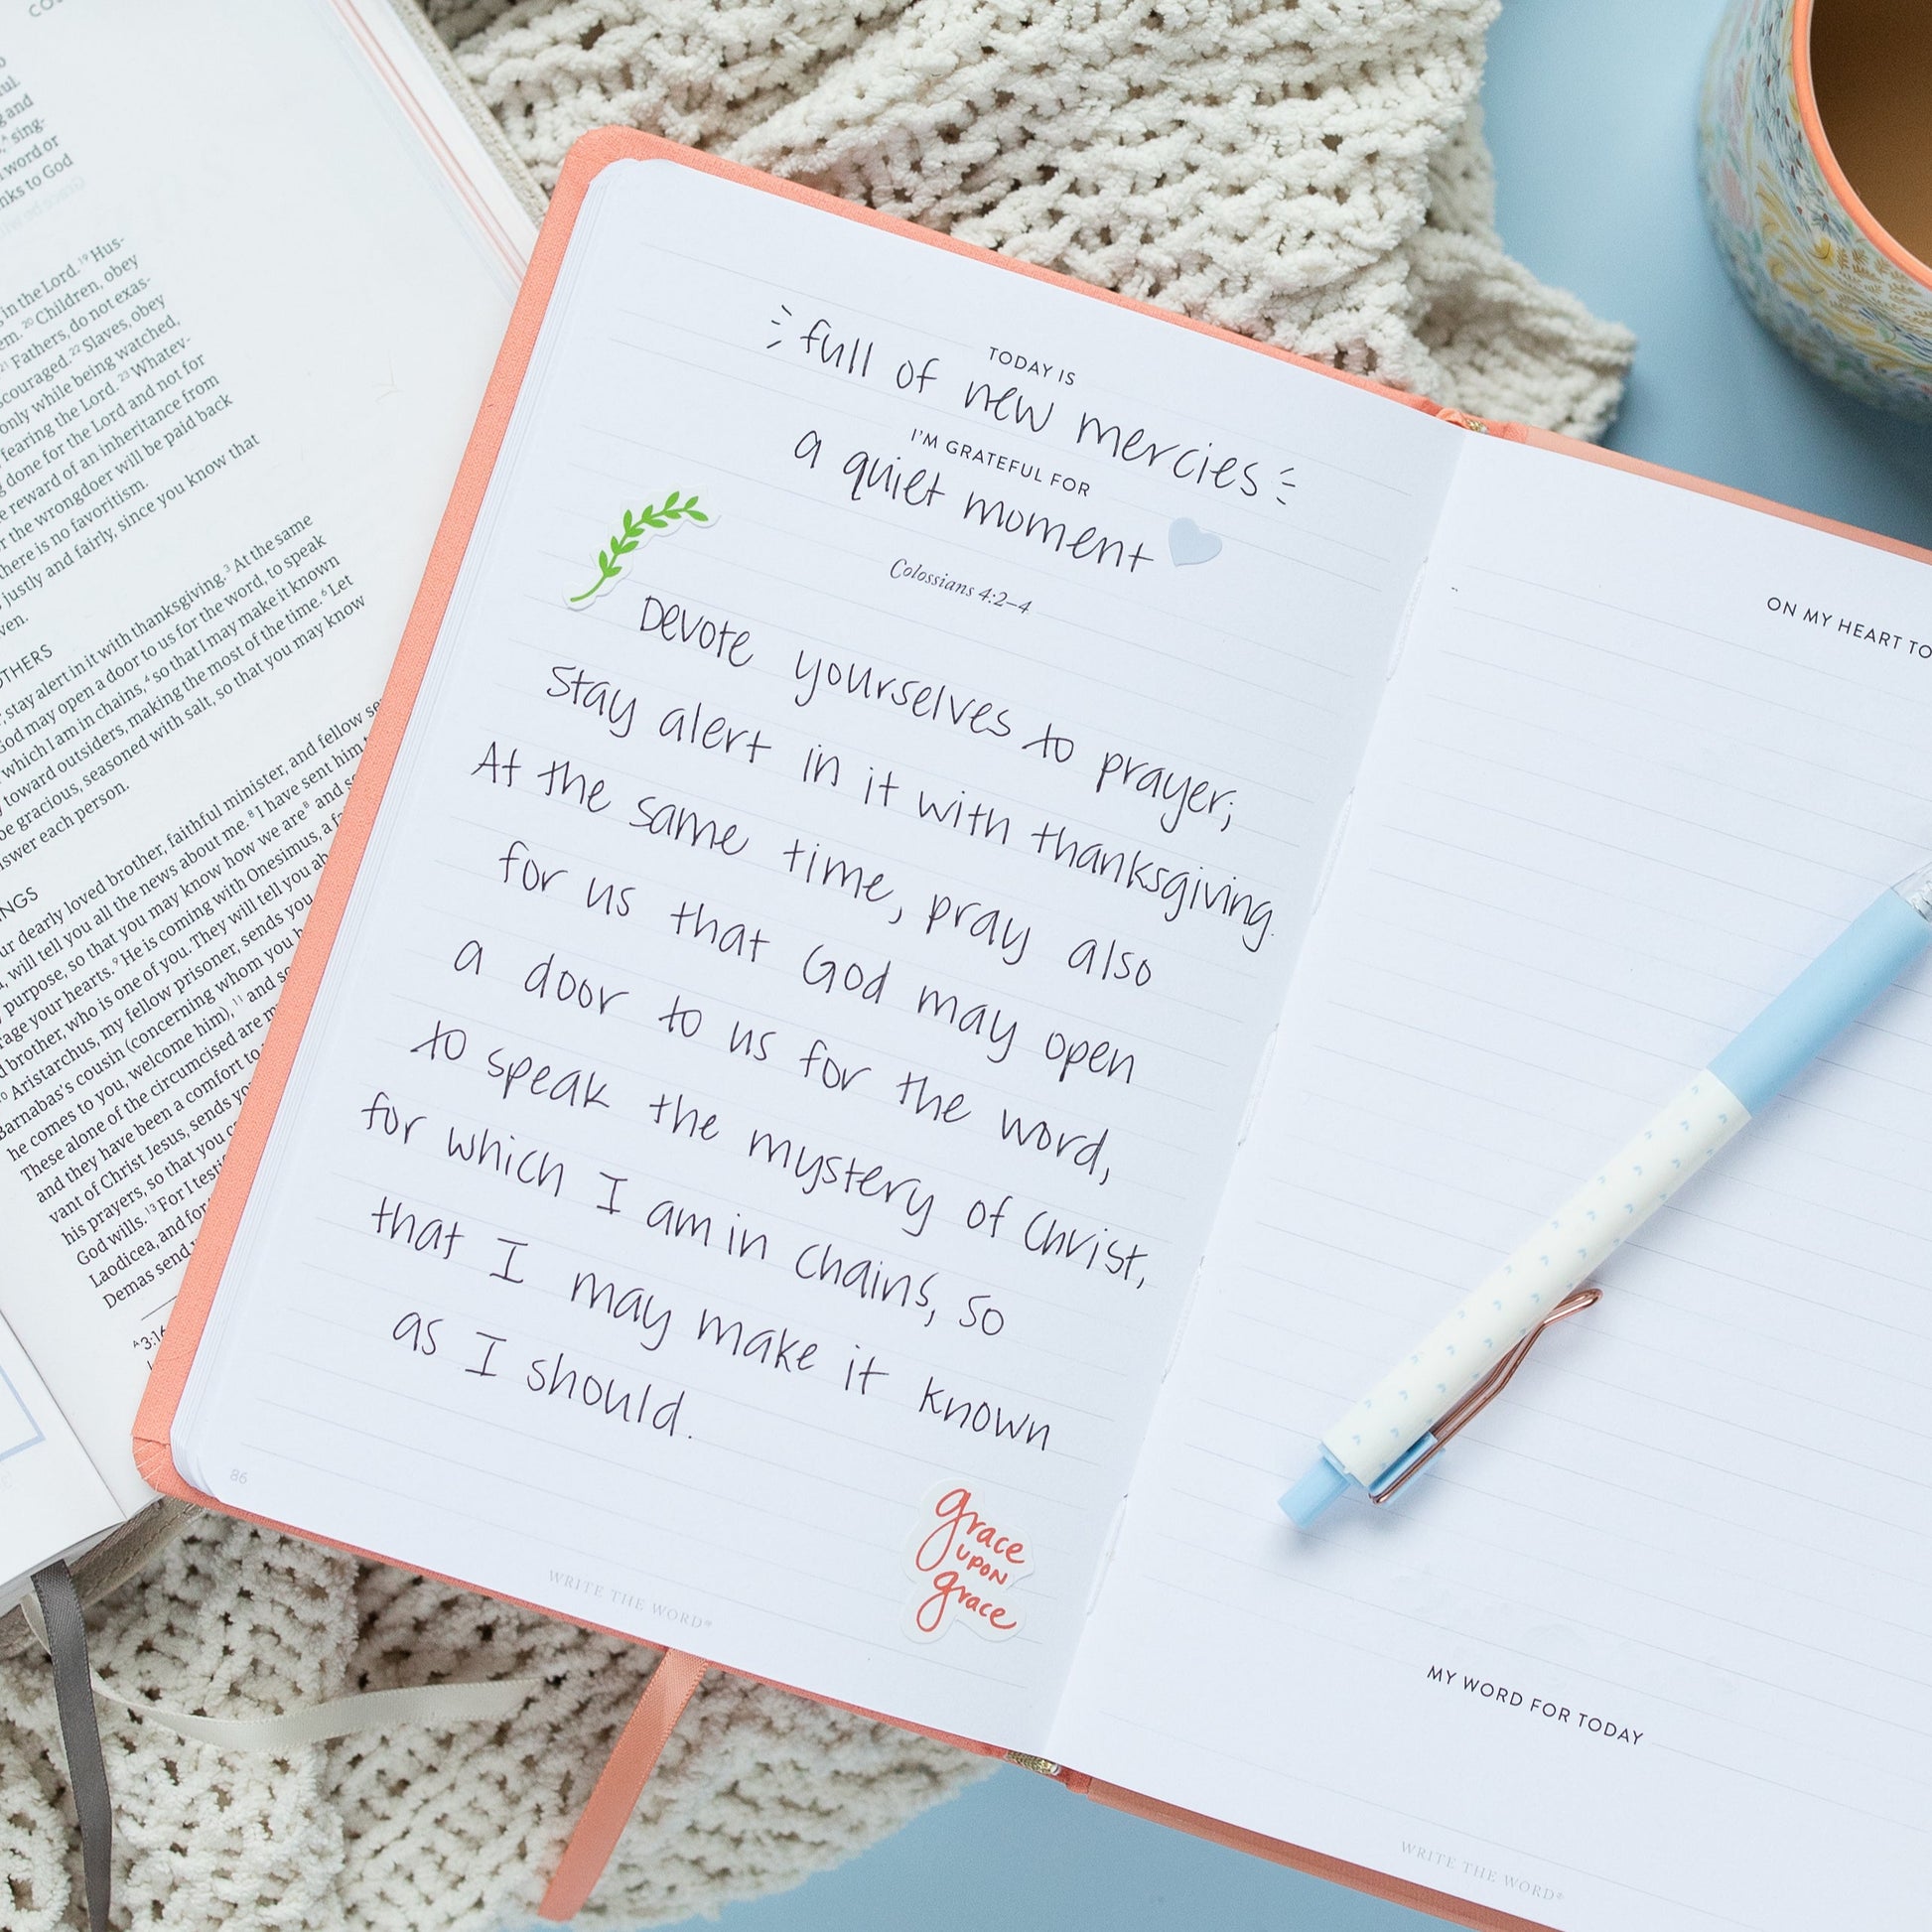 in the Lord. 19 Hus-
20 Children, obey
21 Fathers, do not exas-
22 Slaves, obey
only while being watched,
fearing the Lord. 23 Whatev-
done for the Lord and not for
reward of an inheritance from
the wrongdoer will be paid back
there is no favoritism.
justly and fairly, since you know that
stay alert in it with thanksgiving. 3 At the same
God may open a door to us for the word, to speak
which I am in chains, 4 so that I may make it known
toward outsiders, making the most of the time. 6 Let
be gracious, seasoned with salt, so that you may know
answer each person.
dearly loved brother, faithful minister, and fellow
will tell you all the news about me. 8 I have sent him
purpose, so that you may know how we are 9 and
your hearts. 9 He is coming with Onesimus, a
brother, who is one of you. They will tell you
10 Aristarchus, my fellow prisoner, sends you
Barnabas's cousin (concerning whom you
he comes to you, welcome him), 11 and
These alone of the circumcised are
and they have been a comfort to
of Christ Jesus, sends
his prayers, so that you
God wills. 13 For I
Laodicea, and for
Demas send
TODAY IS
full of new mercies
I'M GRATEFUL FOR
a quiet moment
Colossians 4:2–4
Devote yourselves to prayer;
stay alert in it with thanksgiving.
At the same time, pray also
for us that God may open
a door to us for the word,
to speak the mystery of Christ,
for which I am in chains, so
that I may make it known
as I should.
86
WRITE THE WORD®
grace
UPON
grace
ON MY HEART TO
MY WORD FOR TODAY
WRITE THE WORD®